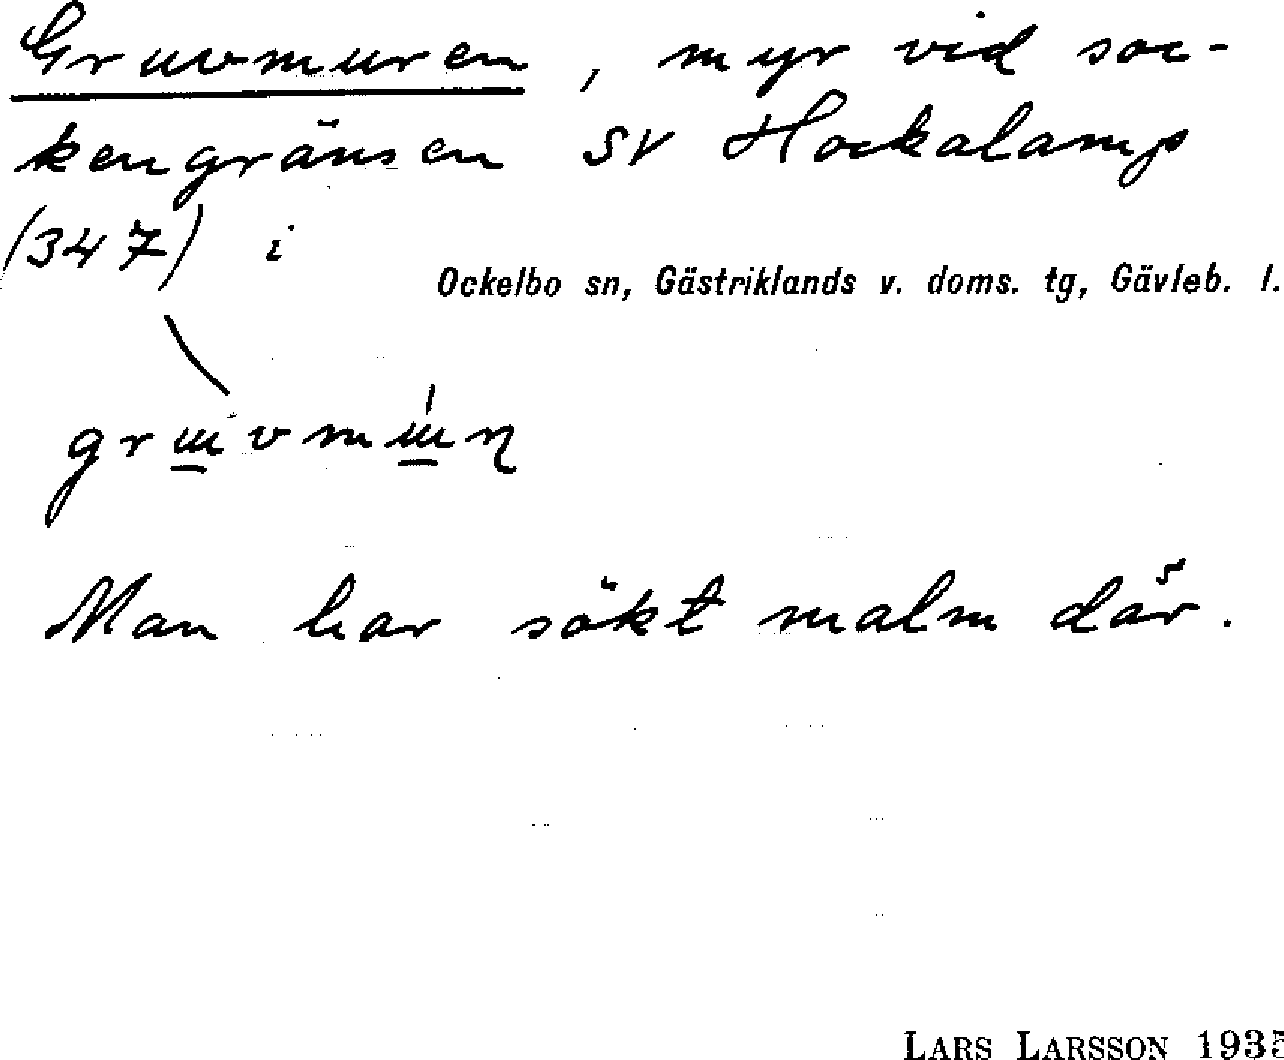 Gruvmuren, myr vid soc-
kengränsen SV Hockalamp
(347) i
Ockelbo sn, Gästriklands v. doms. tg, Gävleb. l.
Man har sökt malm där.
LARS LARSSON 1935